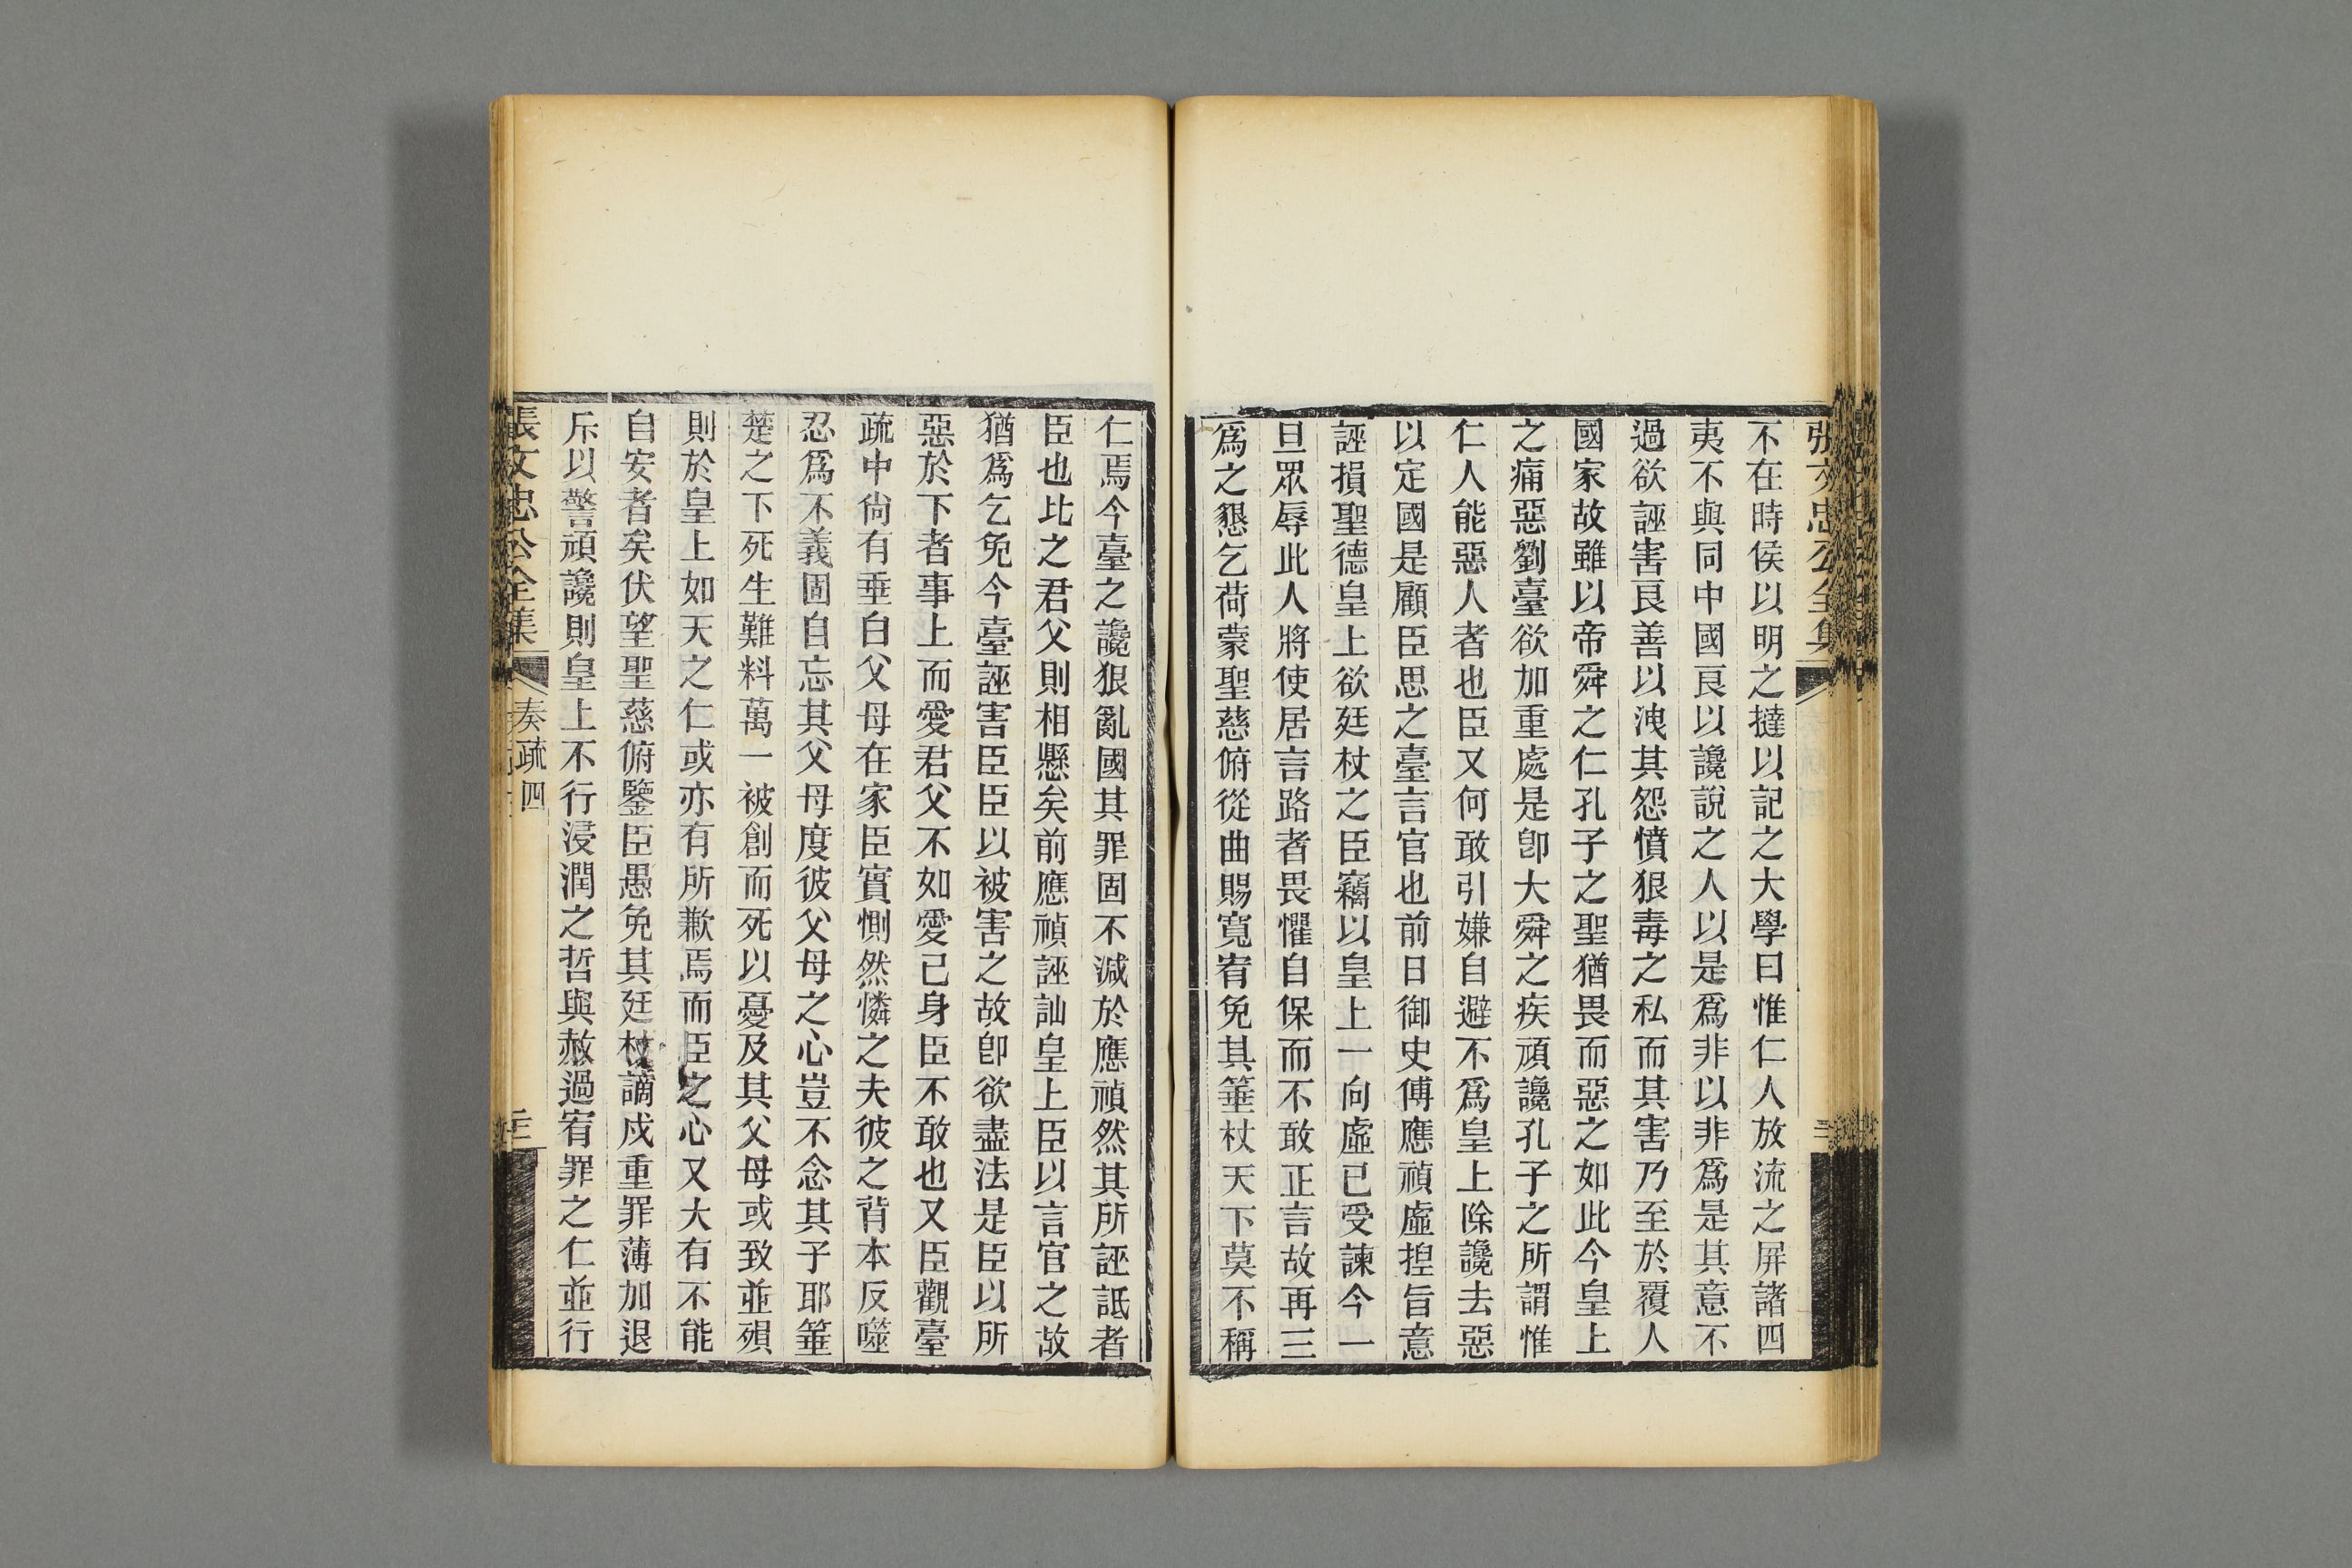 張文忠公全集
不在時侯以明之撻以記之大學曰惟仁人放流之屏諸四
夷不與同中國良以讒說之人以是爲非以非爲是其意不
過欲誣害良善以洩其怨憤狠毒之私而其害乃至於覆人
國家故雖以帝舜之仁孔子之聖猶畏而惡之如此今皇上
之痛惡劉臺欲加重處是卽大舜之疾頑讒孔子之所謂惟
仁人能惡人者也臣又何敢引嫌自避不爲皇上除讒去惡
以定國是顧臣思之臺言官也前日御史傅應禎虛揑旨意
誣損聖德皇上欲廷杖之臣竊以皇上一向虛已受諫今一
旦眾辱此人將使居言路者畏懼自保而不敢正言故再三
爲之懇乞荷蒙聖慈俯從曲賜寬宥免其箠杖天下莫不稱
仁焉今臺之讒狠亂國其罪固不減於應禎然其所誣詆者
臣也比之君父則相懸矣前應禎誣訕皇上臣以言官之故
猶爲乞免今臺誣害臣臣以被害之故卽欲盡法是臣以所
惡於下者事上而愛君父不如愛己身臣不敢也又臣觀臺
疏中尙有垂白父母在家臣實惻然憐之夫彼之背本反噬
忍爲不義固自忘其父母度彼父母之心豈不念其子耶箠
楚之下死生難料萬一被創而死以憂及其父母或致並殞
則於皇上如天之仁或亦有所歉焉而臣之心又大有不能
自安者矣伏望聖慈俯鑒臣愚免其廷杖謫戍重罪薄加退
斥以警頑讒則皇上不行浸潤之哲與赦過宥罪之仁並行
張文忠公全集
奏疏四